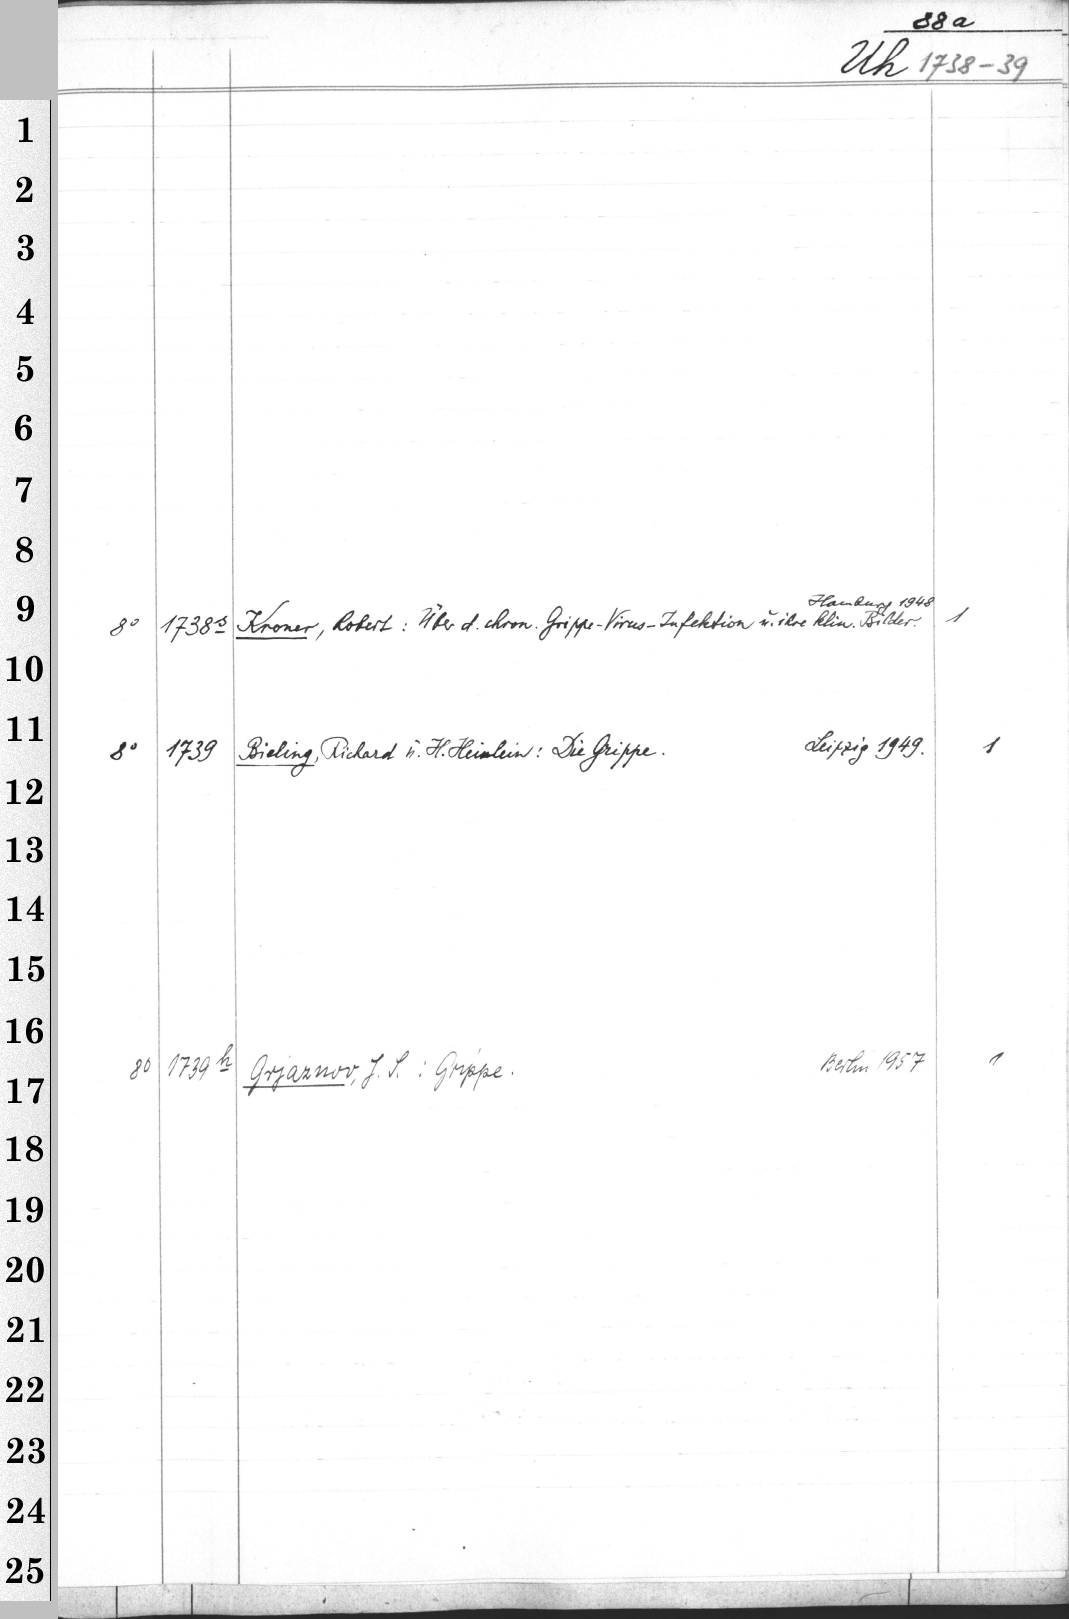 88a
Uh 1738-39
1
2
3
4
5
6
7
8
9
Hamburg 1948
8° 1738s Kroner, Robert: Über d. chron. Grippe-Virus-Infektion u. ihre klin. Bilder. 1
10
11
8° 1739 Bieling, Richard u. H. Heinlein: Die Grippe. Leipzig 1949. 1
12
13
14
15
16
8° 1739h Grjaznov, J. S.: Grippe. Berlin 1957 1
17
18
19
20
21
22
23
24
25